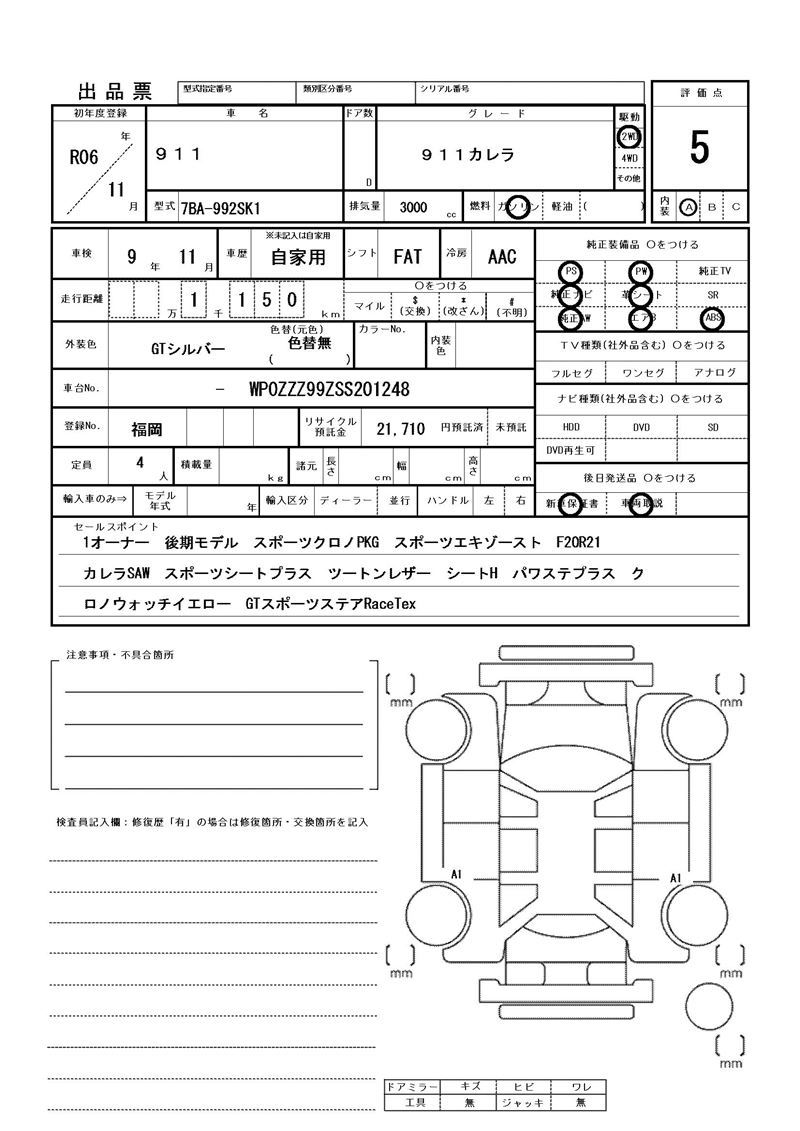 出品票 型式指定番号 類別区分番号 シリアル番号 評価点
初年度登録 車名 ドア数 グレード 駆動
R06 年 11 月 911 D 911カレラ 2WD 5
4WD
その他
型式 7BA-992SK1 排気量 3000 cc 燃料 ガソリン 軽油 ( ) 内装 A B C
※未記入は自家用 純正装備品 ○をつける
車検 9 年 11 月 車歴 自家用 シフト FAT 冷房 AAC
PS PW 純正TV
走行距離 万 1 千 1 5 0 km ○をつける 純正ナビ 革シート SR
マイル $(交換) *(改ざん) #(不明)
純正AW エアB ABS
外装色 GTシルバー 色替(元色) 色替無 ( ) カラーNo. 内装色
TV種類(社外品含む) ○をつける
フルセグ ワンセグ アナログ
車台No. - WP0ZZZ99ZSS201248
ナビ種類(社外品含む) ○をつける
登録No. 福岡 リサイクル預託金 21,710 円預託済 未預託
HDD DVD SD
DVD再生可
定員 4 人 積載量 kg 諸元 長さ cm 幅 cm 高さ cm
後日発送品 ○をつける
輸入車のみ⇒ モデル年式 年 輸入区分 ディーラー 並行 ハンドル 左 右
新車保証書 車両取説
セールスポイント
1オーナー 後期モデル スポーツクロノPKG スポーツエキゾースト F20R21
カレラSAW スポーツシートプラス ツートンレザー シートH パワステプラス ク
ロノウォッチイエロー GTスポーツステアRaceTex
注意事項・不具合箇所
[ ] mm [ ] mm
検査員記入欄：修復歴「有」の場合は修復箇所・交換箇所を記入
A1 A1
[ ] mm [ ] mm
[ ] mm
ドアミラー キズ ヒビ ワレ
工具 無 ジャッキ 無